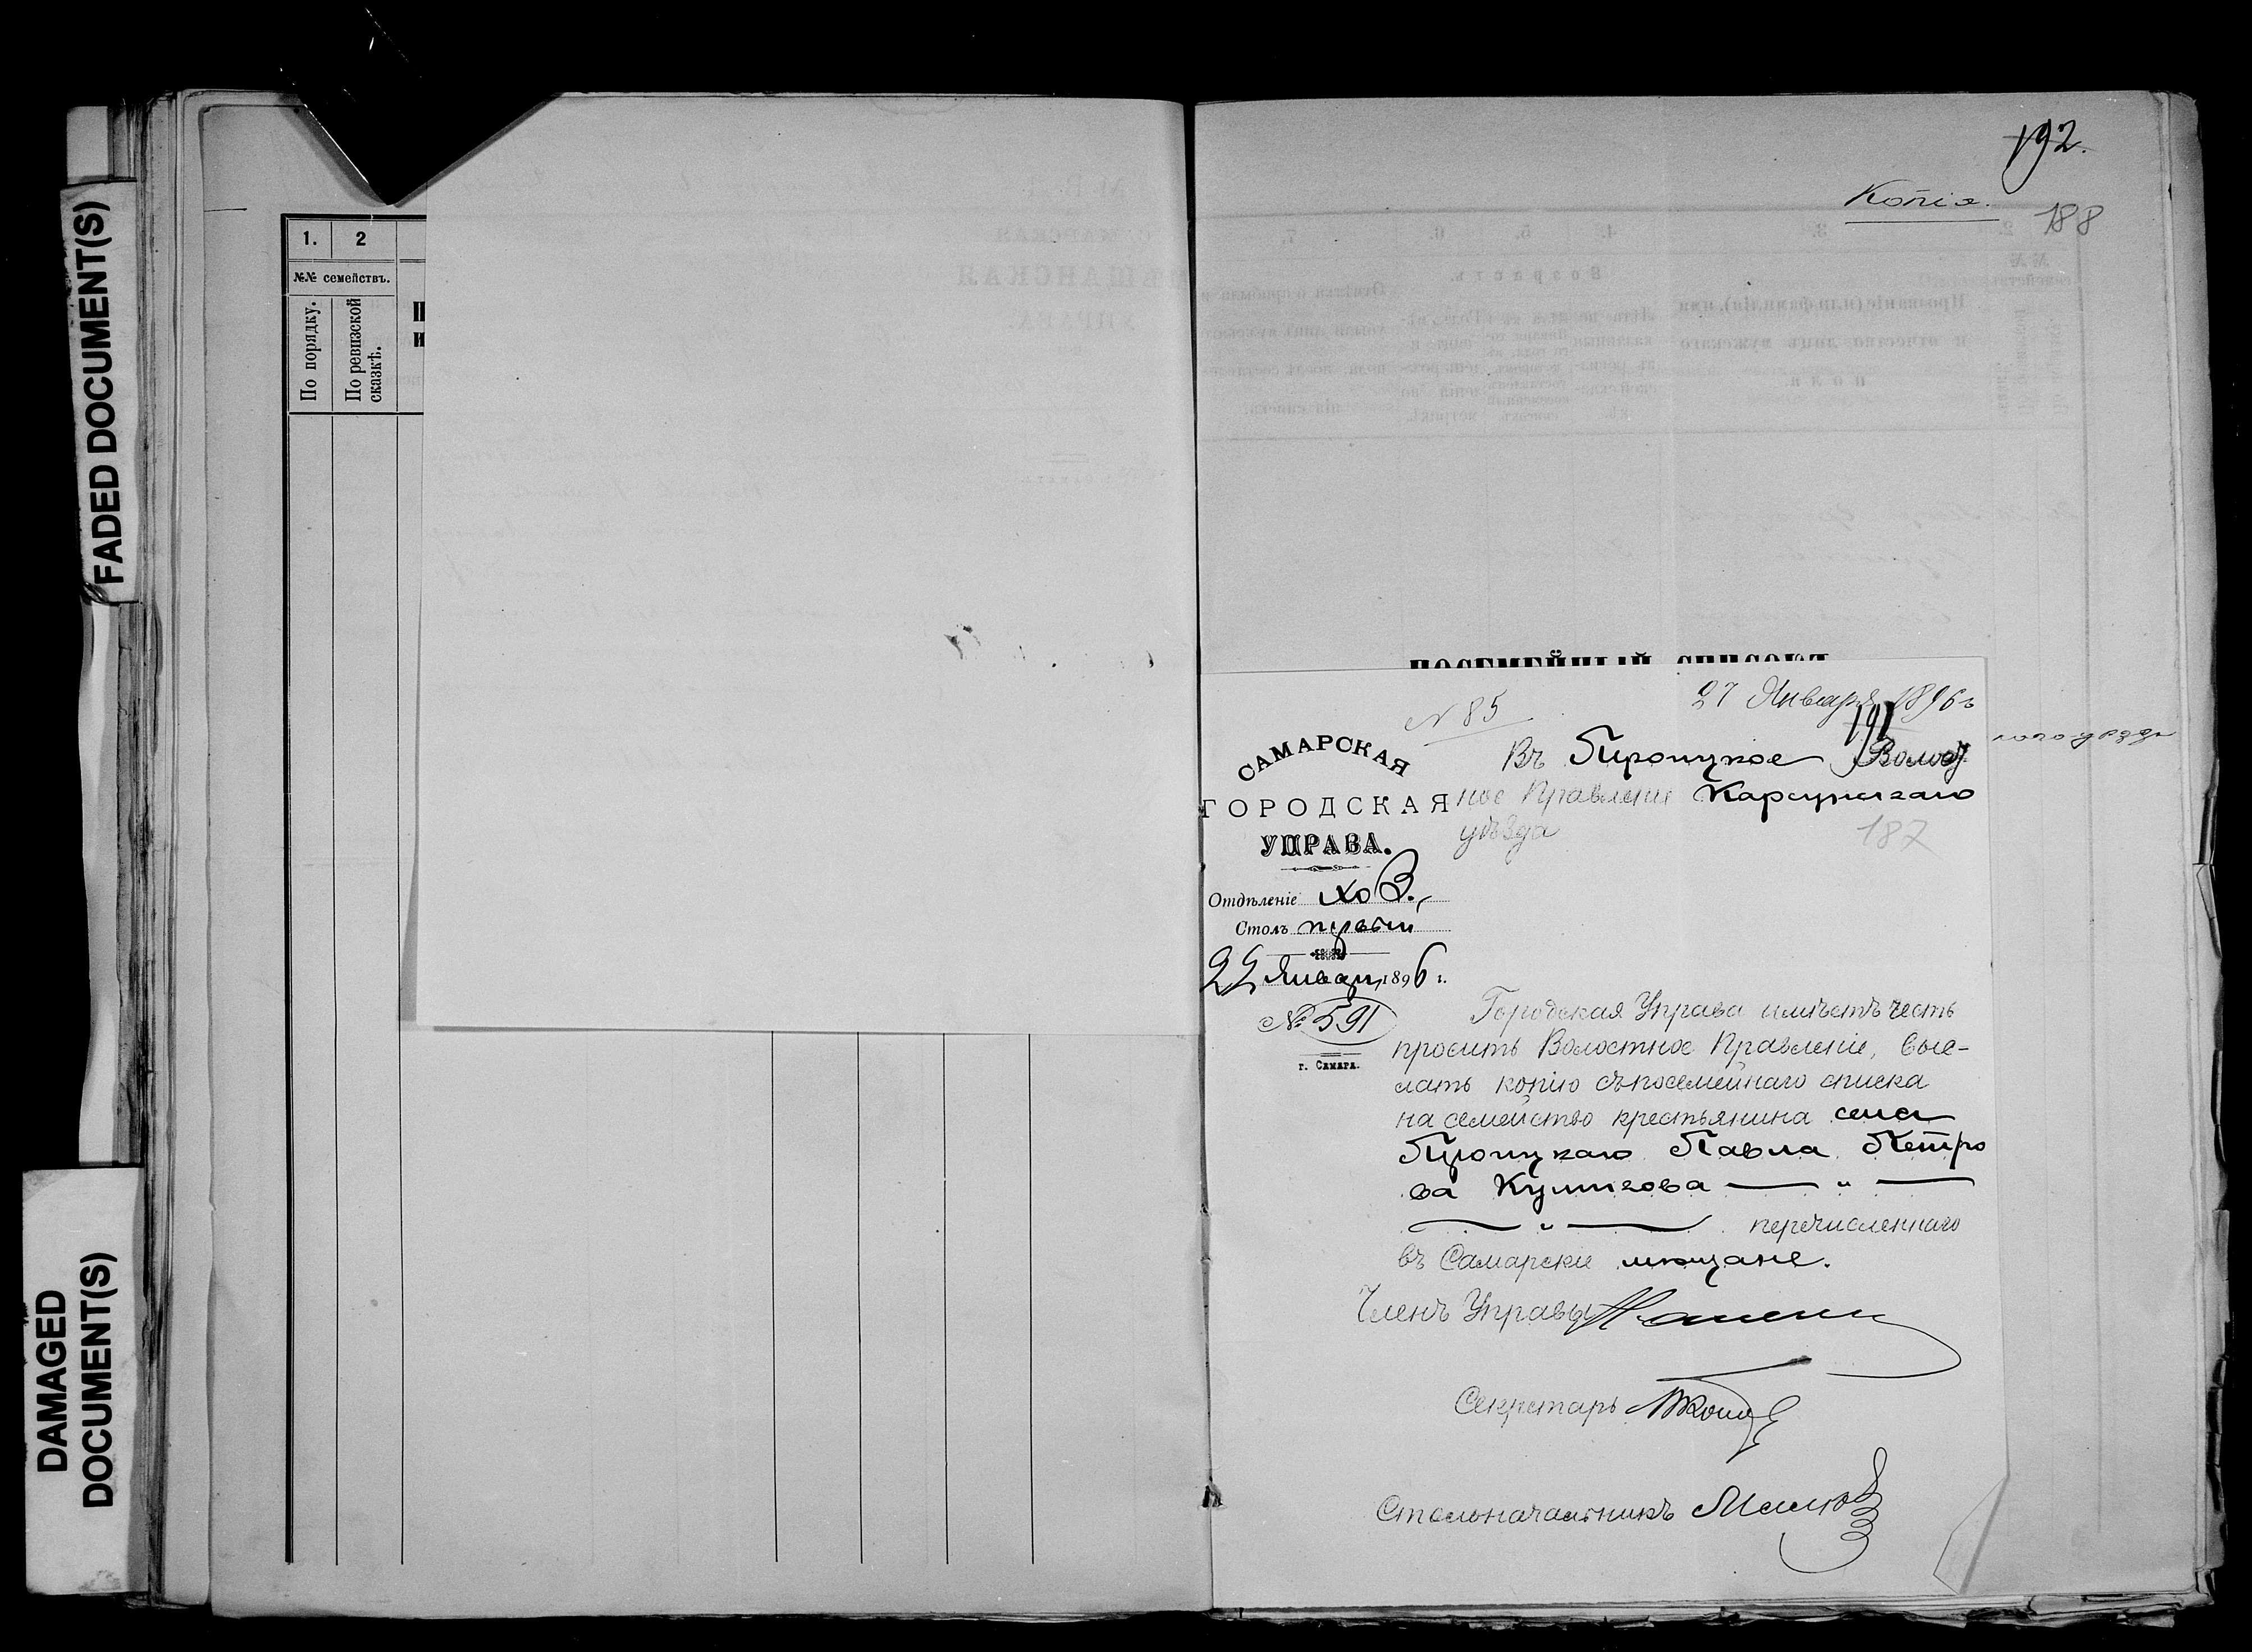 FADED DOCUMENT(S)
DAMAGED
DOCUMENT(S)
1. 2
№№ семействъ.
По порядку.
По ревизской
сказкѣ.
192.
Копія.
188
ПОСЕМЕЙНЫЙ СПИСОКЪ
27 Января 1896 г
№ 85
191
САМАРСКАЯ
ГОРОДСКАЯ
УПРАВА.
Въ Троицкое Волост
ное Правленіе Карсунскаго
уѣзда
187
Отдѣленіе
Столъ первый
22 Января 1896 г.
№ 591
г. Самара.
Городская Управа имѣетъ честь
просить Волостное Правленіе, выс-
лать копію съ посемейнаго списка
на семейство крестьянина села
Троицкаго Павла Петро
ва Куликова — „ —
— „ — перечисленнаго
въ Самарскіе мѣщане.
Членъ Управы
Секретарь
Столоначальникъ